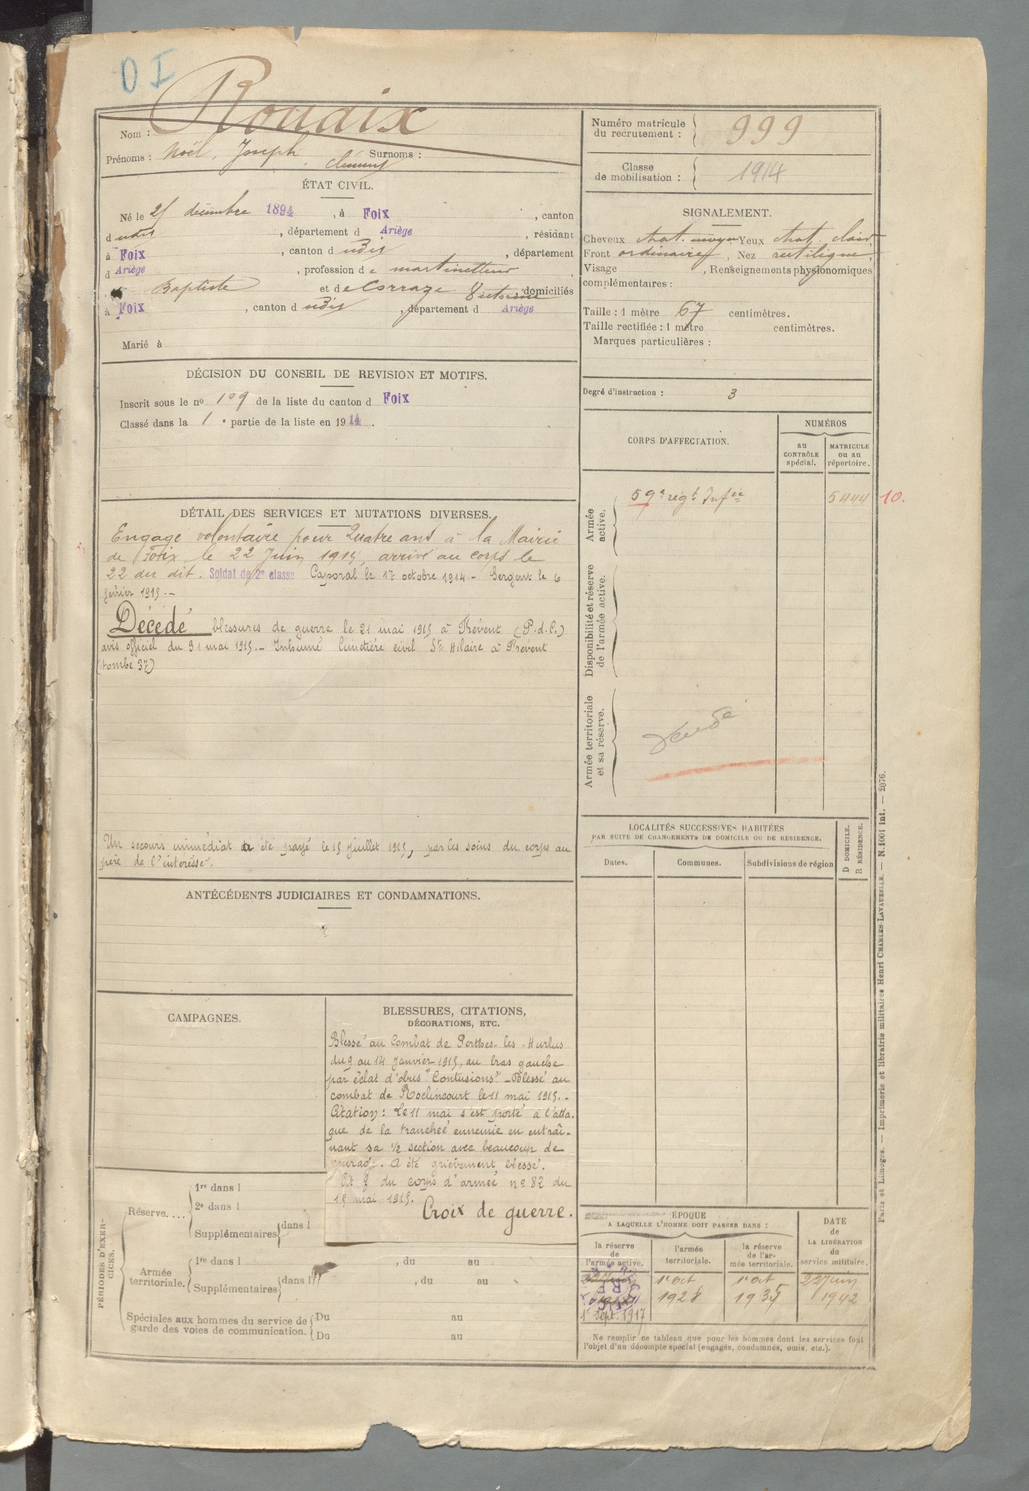 O I
Nom : Roudix
Prénoms : Noël, Joseph, Surnoms :
ÉTAT CIVIL.
Né le 25 décembre 1894, à Foix, canton
d udit, département d Ariège, résidant
à Foix, canton d udit, département
d Ariège, profession de martinetteur
Baptiste et de Corraze Victorine domiciliés
à Foix, canton d udit, département d Ariège
Marié à
DÉCISION DU CONSEIL DE REVISION ET MOTIFS.
Inscrit sous le no 109 de la liste du canton d Foix
Classé dans la 1e partie de la liste en 1914.
DÉTAIL DES SERVICES ET MUTATIONS DIVERSES.
Engagé volontaire pour Quatre ans à la Mairie
de Foix le 22 Juin 1914, arrivé au corps le
22 du dit. Soldat de 2e classe Caporal le 17 octobre 1914 - Sergent le 6
février 1915.-
Décédé blessures de guerre le 21 mai 1915 à Frévent (P.d.C.)
avis officiel du 31 mai 1915.- Inhumé Cimetière civil St Hilaire à Frévent
(tombe 37)
Un secours immédiat a été payé le 15 juillet 1915, par les soins du corps au
père de l'intéressé.
ANTÉCÉDENTS JUDICIAIRES ET CONDAMNATIONS.
CAMPAGNES.
BLESSURES, CITATIONS,
DÉCORATIONS, ETC.
Blessé au Combat de Perthes-les-Hurlus
du 9 au 14 Janvier 1915, au bras gauche
par éclat d'obus "Contusions" - Blessé au
combat de Roclincourt le 11 mai 1915.-
Citation : Le 11 mai s'est porté à l'atta-
que de la tranchée ennemie en entraî-
nant sa 1/2 section avec beaucoup de
courage. A été grièvement blessé.
du corps d'armée no 82 du
15 mai 1915.
Croix de guerre.
PÉRIODES D'EXER-
CICES.
Réserve....
1re dans l
2e dans l
Supplémentaires dans l
Armée
territoriale.
1re dans l , du au
Supplémentaires dans l , du au
Spéciales aux hommes du service de
garde des voies de communication.
Du au
Du au
Numéro matricule
du recrutement : 999
Classe
de mobilisation : 1914
SIGNALEMENT.
Cheveux chat. moyen Yeux chat. clair
Front ordinaire, Nez rectiligne
Visage , Renseignements physionomiques
complémentaires :
Taille : 1 mètre 67 centimètres.
Taille rectifiée : 1 mètre centimètres.
Marques particulières :
Degré d'instruction : 3
CORPS D'AFFECTATION.
NUMÉROS
au
CONTRÔLE
spécial.
MATRICULE
ou au
répertoire.
Armée
active.
59e régt Infie
5444
10.
Disponibilité et réserve
de l'armée active.
Armée territoriale
et sa réserve.
LOCALITÉS SUCCESSIVES HABITÉES
PAR SUITE DE CHANGEMENTS DE DOMICILE OU DE RÉSIDENCE.
Dates.
Communes.
Subdivisions de région
D DOMICILE.
R RÉSIDENCE.
ÉPOQUE
A LAQUELLE L'HOMME DOIT PASSER DANS :
la réserve
de
l'armée active.
l'armée
territoriale.
la réserve
de l'ar-
mée territoriale.
DATE
de
LA LIBÉRATION
du
service militaire.
1r Sept. 1917
1r oct
1928
1r oct
1935
22 Juin
1942
Ne remplir ce tableau que pour les hommes dont les services font
l'objet d'un décompte spécial (engagés, condamnés, omis, etc.).
Paris et Limoges. — Imprimerie et librairie militaires Henri CHARLES-LAVAUZELLE. — N. 1001 Int. — 2876.